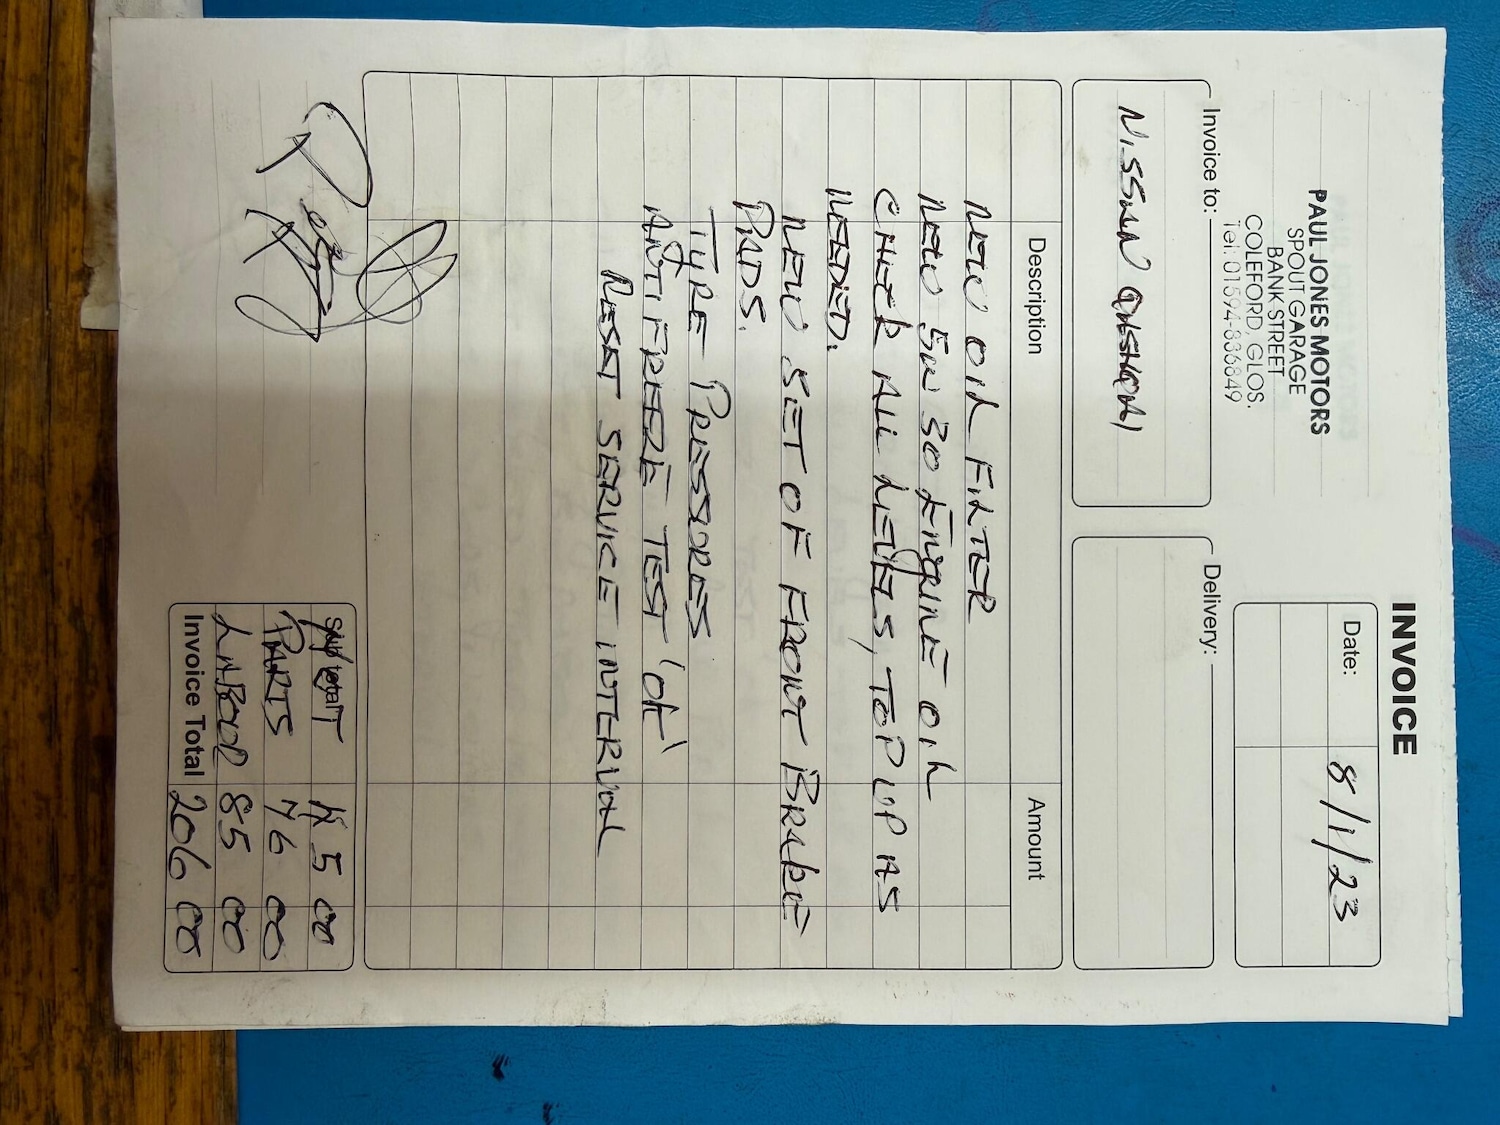 INVOICE
PAUL JONES MOTORS
SPOUT GARAGE
BANK STREET
COLEFORD, GLOS.
Tel: 01594-836849
Date: 8/1/23
Invoice to:
NISSAN QASHQAI
Delivery:
Description Amount
NEW OIL FILTER
NEW 5W 30 ENGINE OIL
CHECK ALL LEVELS, TOP UP AS
NEEDED.
NEW SET OF FRONT BRAKE
PADS.
TYRE PRESSURES
ANTIFREEZE TEST 'OK'
RESET SERVICE INTERVAL
Sub total 45 00
PARTS 76 00
LABOUR 85 00
Invoice Total 206 00